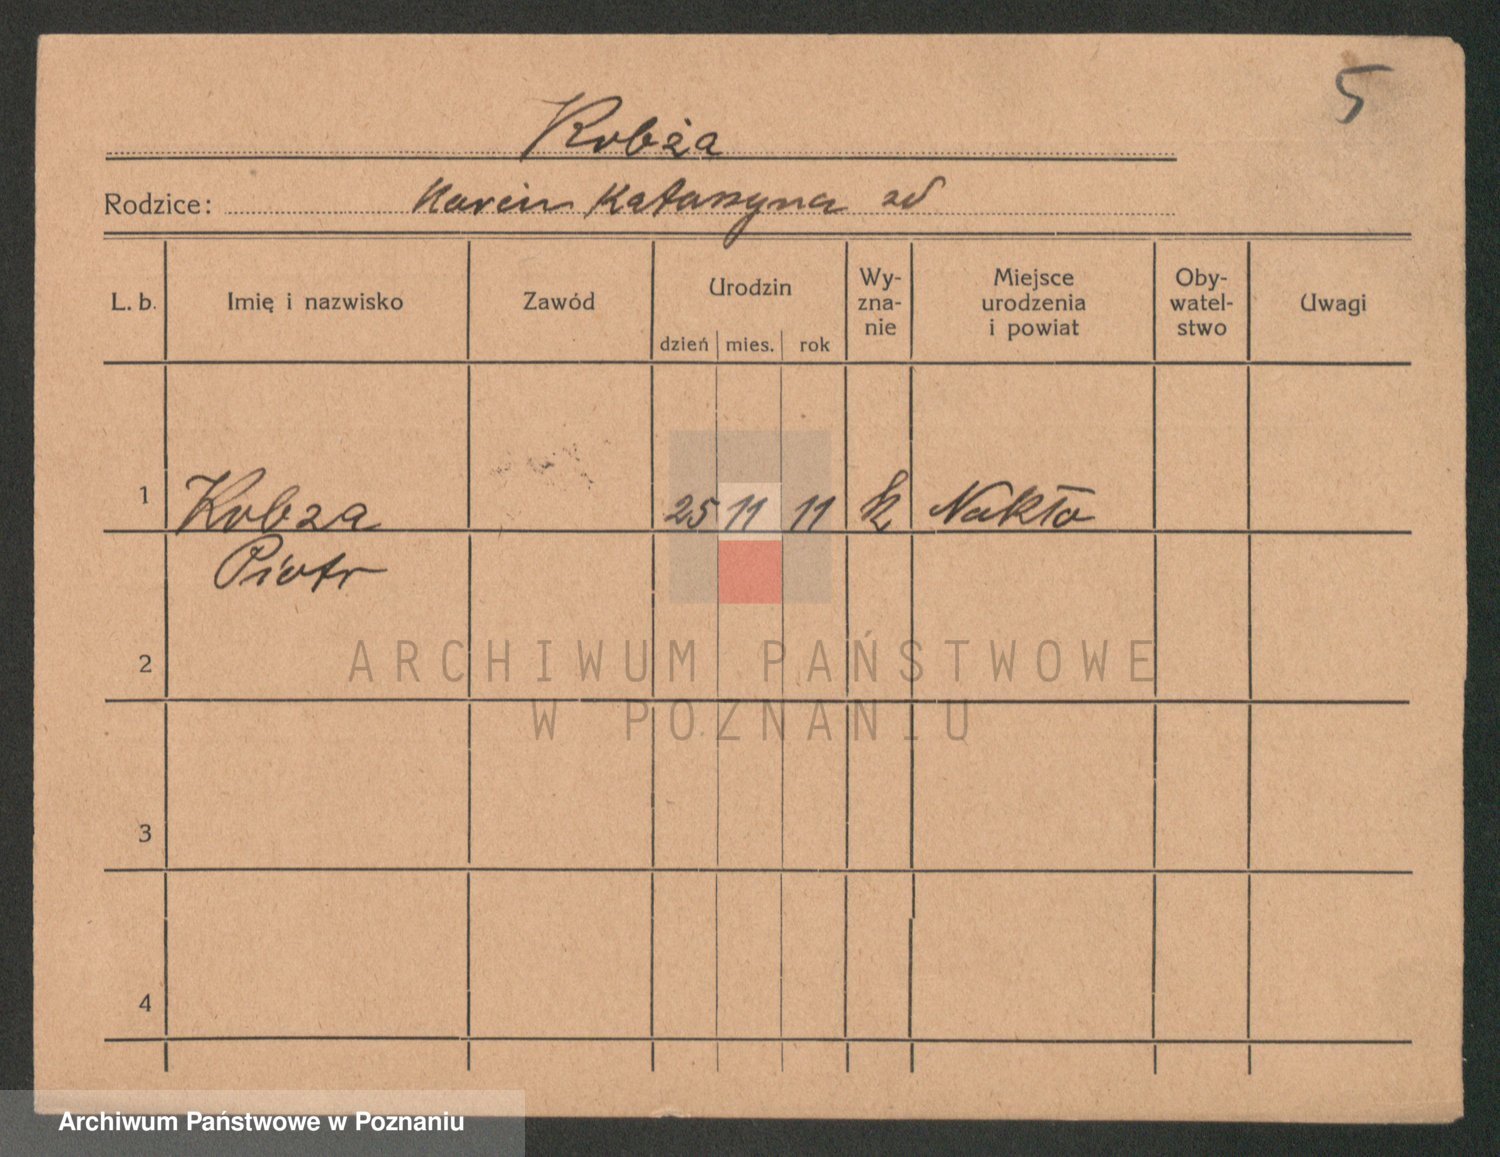 5
Kobża
Rodzice: Marcin Katarzyna zd
L. b. Imię i nazwisko Zawód Urodzin dzień mies. rok Wy-zna-nie Miejsce urodzenia i powiat Oby-watel-stwo Uwagi
1 Kobza 25 11 11 k Nakło
Piotr
2
ARCHIWUM PAŃSTWOWE
W POZNANIU
3
4
Archiwum Państwowe w Poznaniu